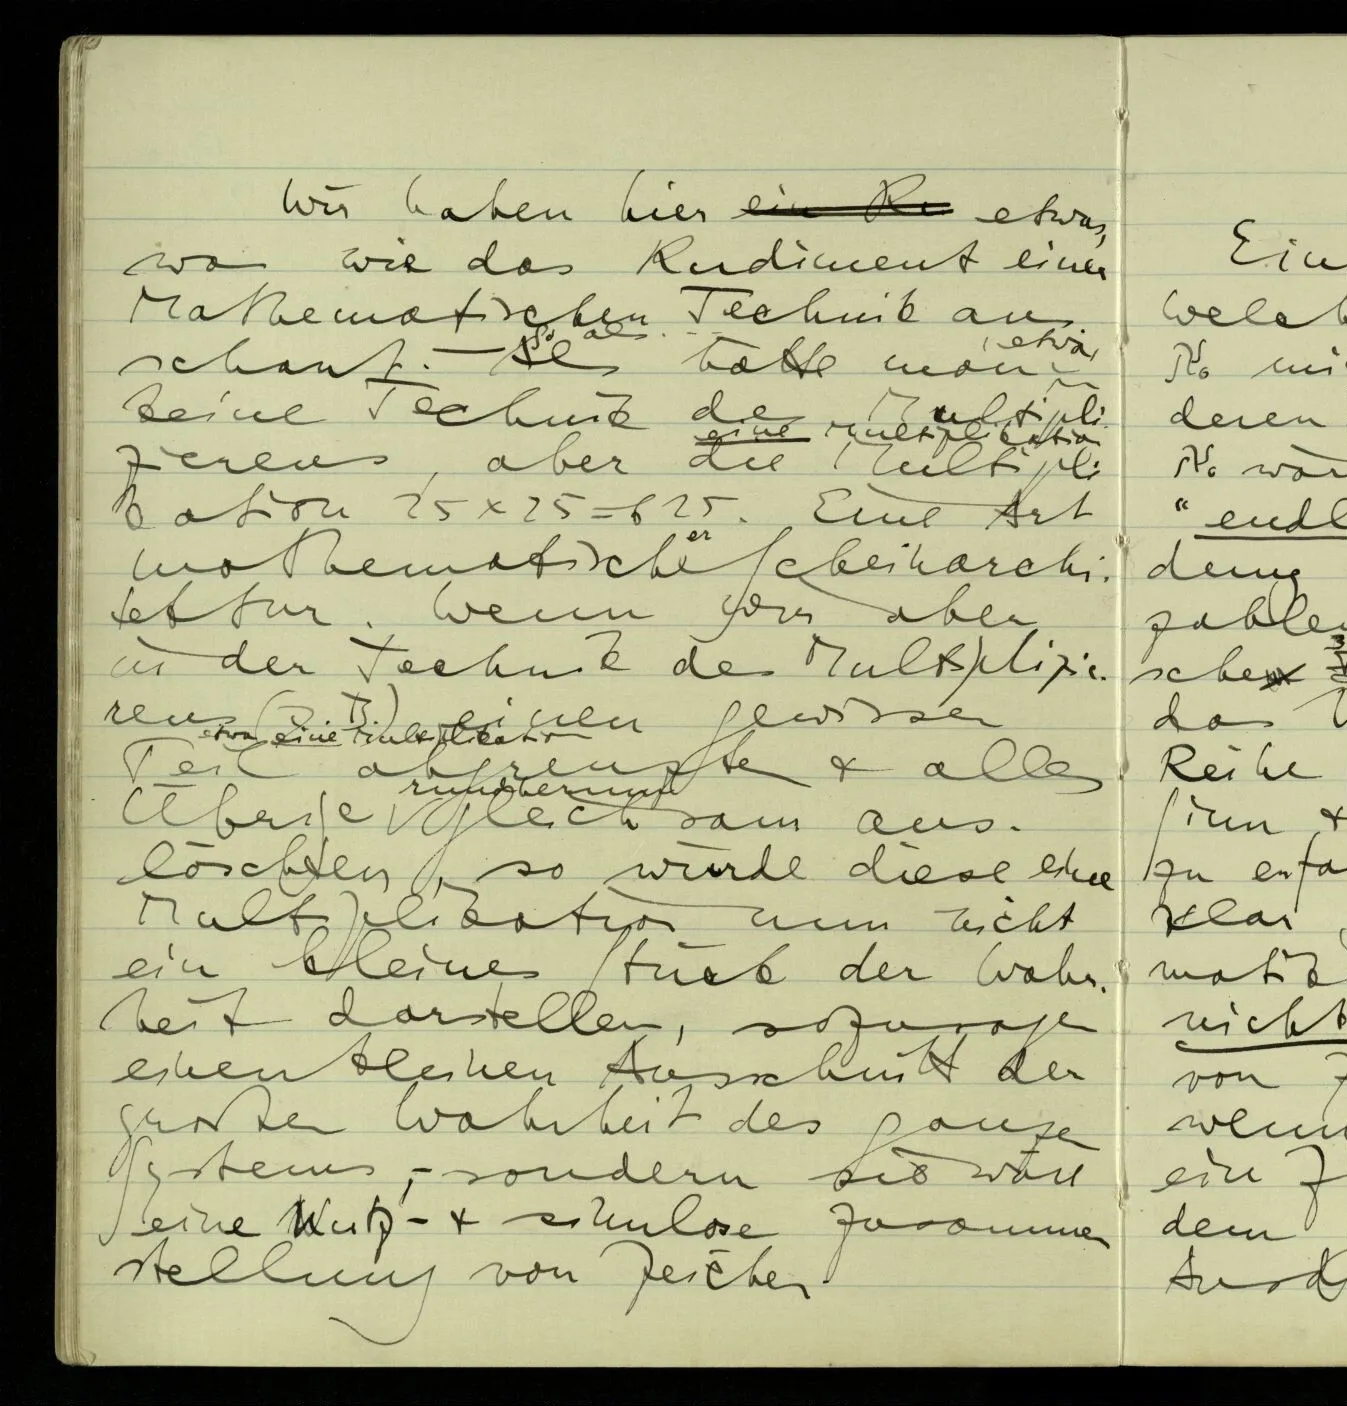 Wir haben hier ein Re etwas,
was wie das Rudiment einer
Mathematischen Technik aus
so als etwa
schaut. – Als hätte man
keine Technik des Multipli
eine Multiplikation
zierens, aber die Multipli
kation 25 × 25 = 625. Eine Art
er
mathematische Scheinarchi-
tektur. Wenn wir aber
in der Technik des Multiplizie-
rens (z.B.) einen gewissen
etwa eine Multiplikation
Teil abgrenzten & alles
rundherum
Übrige gleichsam aus-
löschten, so würde diese eine
Multiplikation nun nicht
ein kleines Stück der Wahr-
heit darstellen, sozusagen
einen kleinen Ausschnitt der
großen Wahrheit des ganzen
Systems, – sondern sie wäre
eine Nutz- & sinnlose Zusammen
stellung von Zeichen.
Ein
welch
ℵ₀ mi
deren
ℵ₀ wär
"endl
dung
zahlen
schen
das
Reihe
Sinn &
zu erfa
klar
matik
nicht
von
wenn
ein Z
dem
Ausd